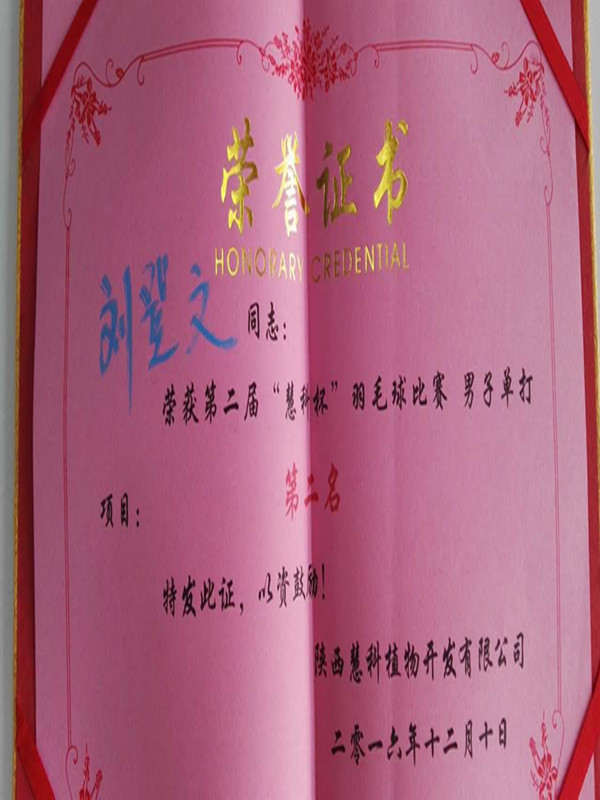 荣誉证书
HONORARY CREDENTIAL
刘登文 同志：
荣获第二届“慧科杯”羽毛球比赛 男子单打
项目： 第二名
特发此证，以资鼓励！
陕西慧科植物开发有限公司
二零一六年十二月十日